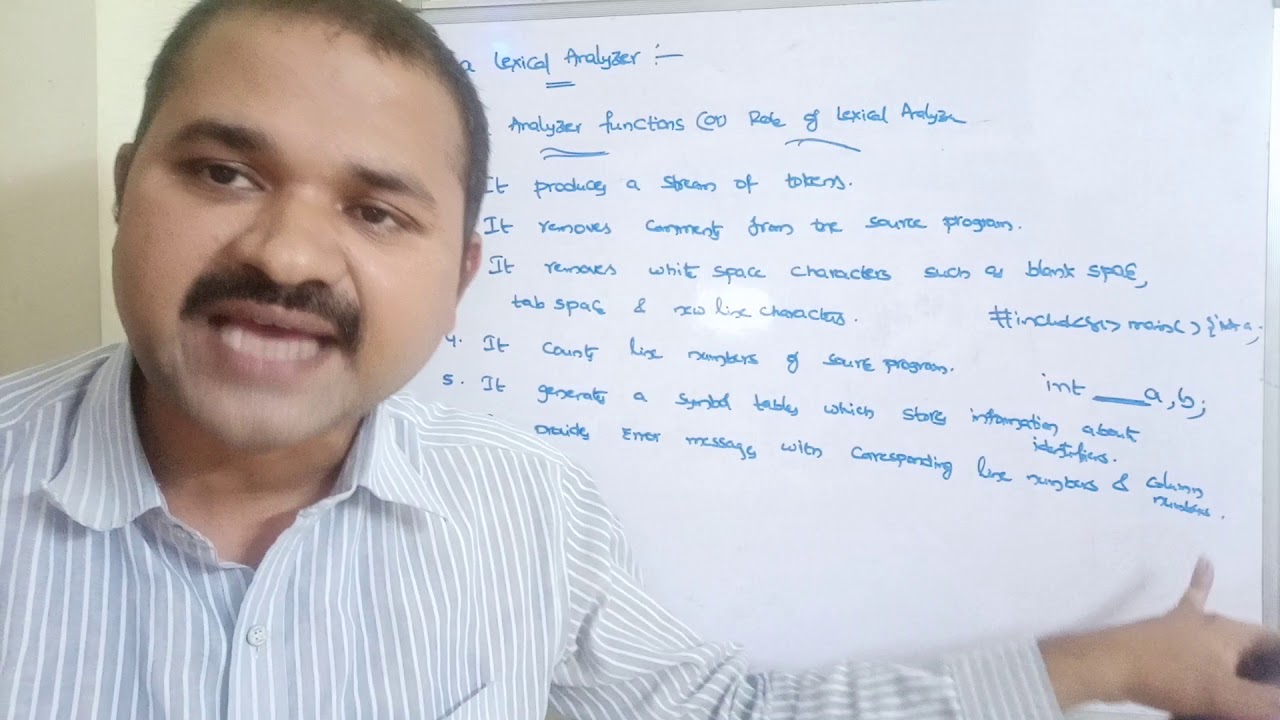 a Lexical Analyzer :-
Analyzer functions (or) Role of Lexical Analyzer
It produces a stream of tokens.
It removes comments from the source program.
It removes white space characters such as blank space,
tab space & new line characters.
#include<> main() {int a;
4. It counts line numbers of source program.
int ___a,b;
5. It generates a symbol tables which stores information about
identifiers.
Error message with corresponding line numbers & column
numbers.